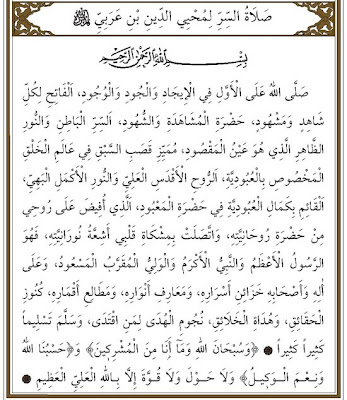 صَلَاةُ السِّرِّ لِمُحْيِي الدِّينِ بْنِ عَرَبِيّ
بِسْمِ اللهِ الرَّحْمٰنِ الرَّحِيمِ
صَلَّى اللهُ عَلَى الْأَوَّلِ فِي الْإِيجَادِ وَالْجُودِ وَالْوُجُودِ، اَلْفَاتِحِ لِكُلِّ
شَاهِدٍ وَمَشْهُودٍ، حَضْرَةِ الْمُشَاهَدَةِ وَالشُّهُودِ، اَلسِّرِّ الْبَاطِنِ وَالنُّورِ
الظَّاهِرِ الَّذِي هُوَ عَيْنُ الْمَقْصُودِ، مُمَيَّزِ قَصَبِ السَّبْقِ فِي عَالَمِ الْخَلْقِ
الْمَخْصُوصِ بِالْعُبُودِيَّةِ، اَلرُّوحِ الْأَقْدَسِ الْعَلِيِّ وَالنُّورِ الْأَكْمَلِ الْبَهِيِّ،
الْقَائِمِ بِكَمَالِ الْعُبُودِيَّةِ فِي حَضْرَةِ الْمَعْبُودِ، اَلَّذِي أُفِيضَ عَلَى رُوحِي
مِنْ حَضْرَةِ رُوحَانِيَّتِهِ، وَاتَّصَلَتْ بِمِشْكَاةِ قَلْبِي أَشِعَّةُ نُورَانِيَّتِهِ، فَهُوَ
الرَّسُولُ الْأَعْظَمُ وَالنَّبِيُّ الْأَكْرَمُ وَالْوَلِيُّ الْمُقَرَّبُ الْمَسْعُودُ، وَعَلَى
آلِهِ وَأَصْحَابِهِ خَزَائِنِ أَسْرَارِهِ، وَمَعَارِفِ أَنْوَارِهِ، وَمَطَالِعِ أَقْمَارِهِ، كُنُوزِ
الْحَقَائِقِ، وَهُدَاةِ الْخَلَائِقِ، نُجُومِ الْهُدَى لِمَنِ اقْتَدَى، وَسَلَّمَ تَسْلِيماً
كَثِيراً كَثِيراً ● ﴿وَسُبْحَانَ اللهِ وَمَآ أَنَا مِنَ الْمُشْرِكِينَ﴾ وَ﴿حَسْبُنَا اللهُ
وَنِعْمَ الْوَكِيلُ﴾ وَلَا حَوْلَ وَلَا قُوَّةَ إِلَّا بِاللهِ الْعَلِيِّ الْعَظِيمِ ●